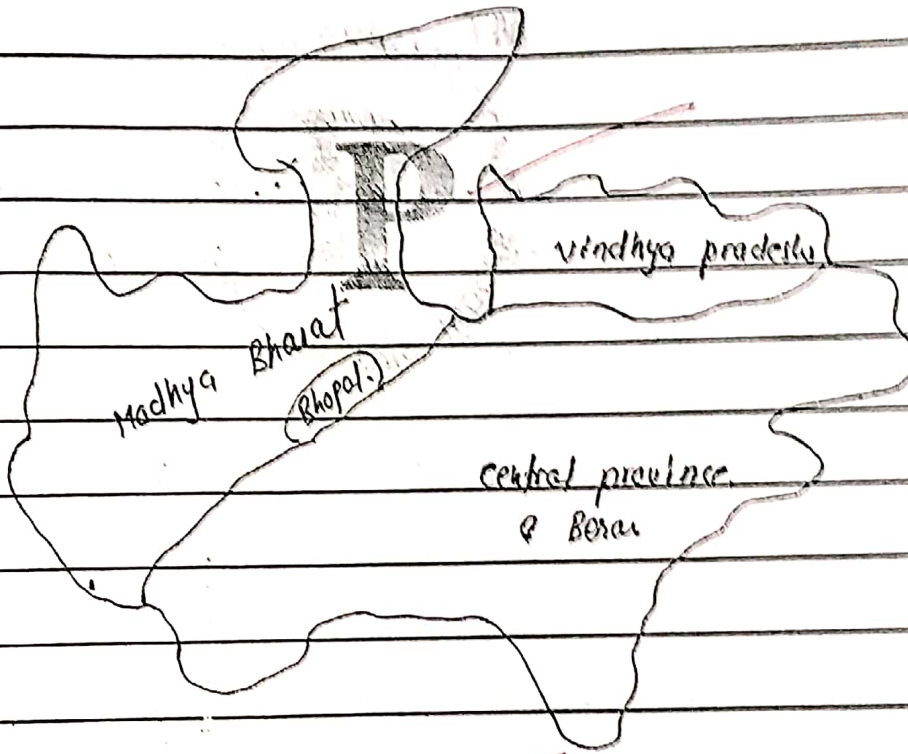 P
Vindhya pradesh
Madhya Bharat
Bhopal.
Central province
& Berar